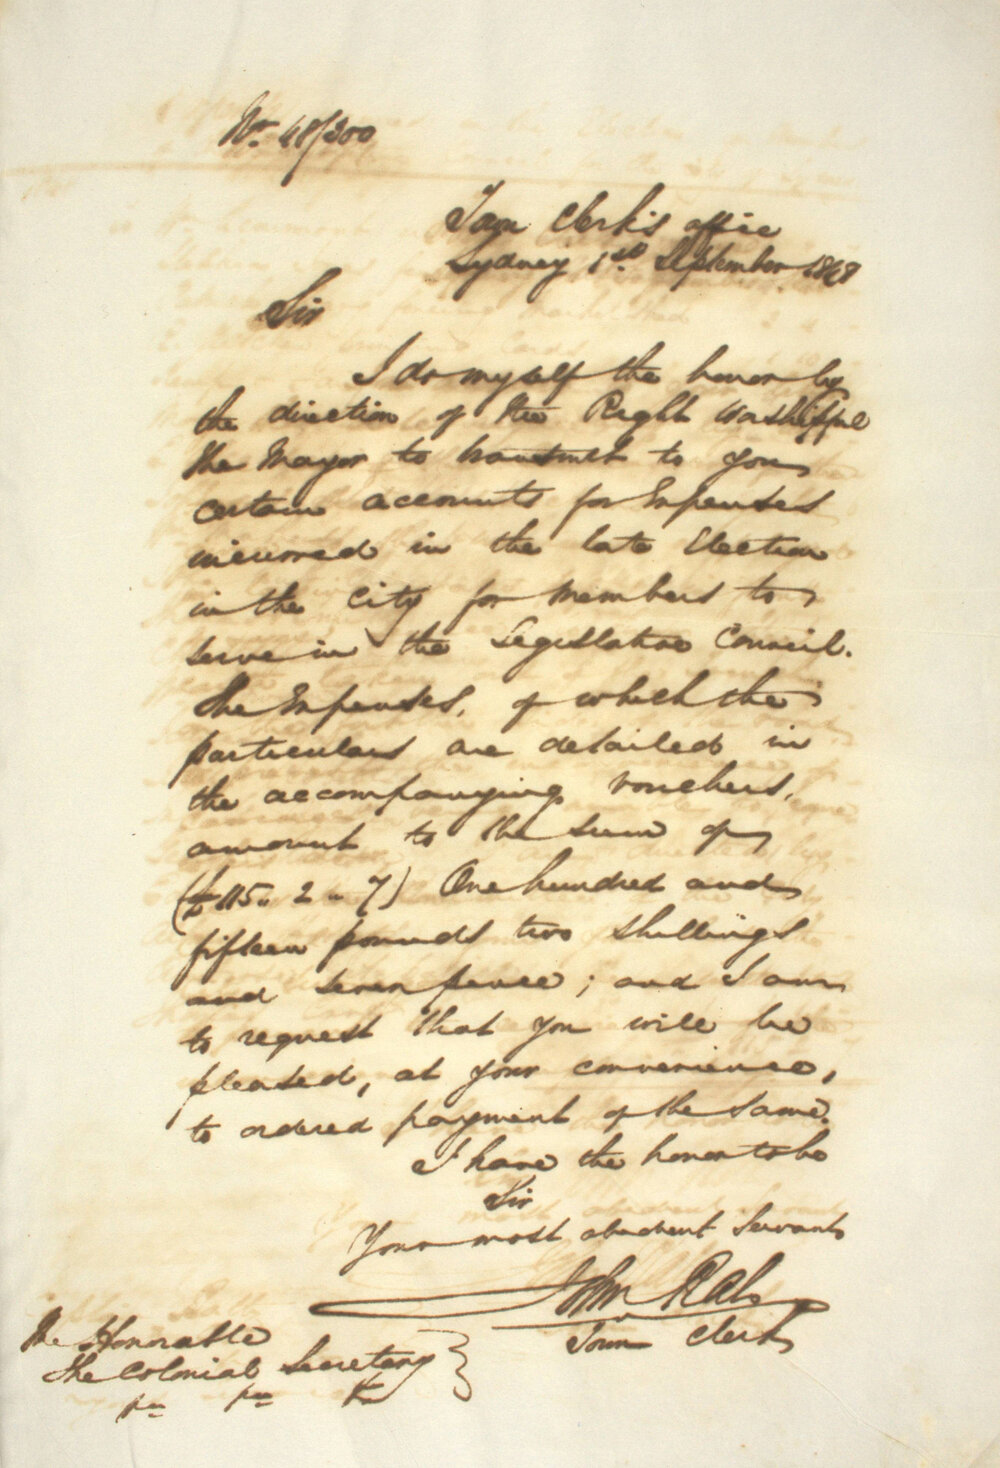 No. 48/300
Town Clerk's office
Sydney 1st September 1848
Sir
I do myself the honor by
the direction of the Right Worshipful
the Mayor to transmit to you
certain accounts for Expenses
incurred in the late Election
in the City for Members to
serve in the Legislative Council.
The Expenses, of which the
particulars are detailed in
the accompanying vouchers,
amount to the sum of
(£115.. 2 .. 7) One hundred and
fifteen pounds two shillings
and seven pence; and I am
to request that you will be
pleased, at your convenience,
to ordered payment of the same.
I have the honor to be
Sir
Your most obedient Servant
John
Town Clerk
The Honorable
The Colonial Secretary